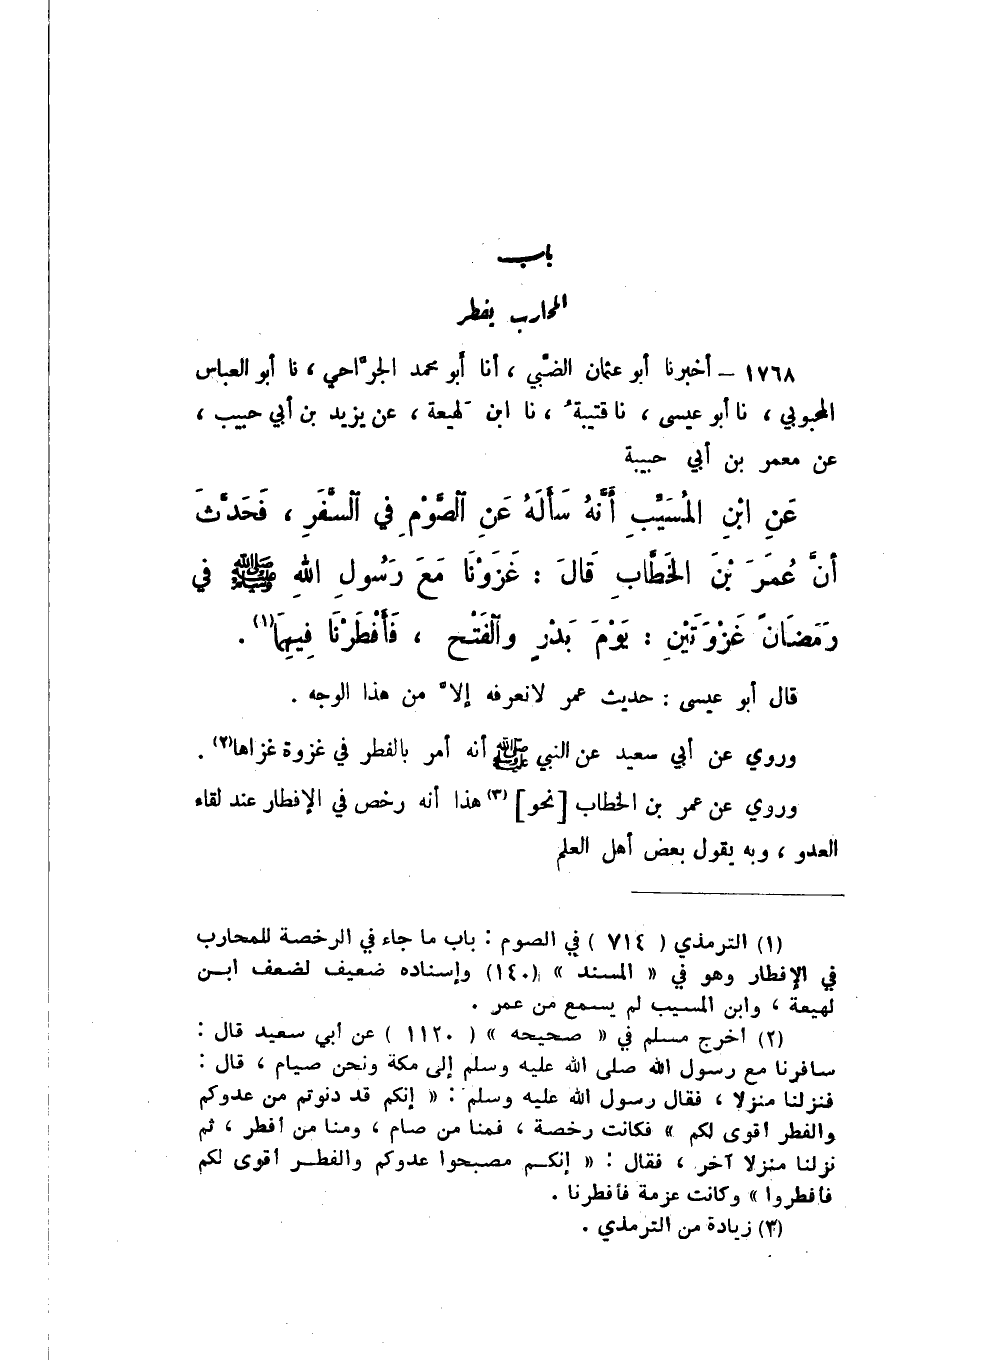 باب
المحارب يفطر
١٧٦٨ – أخبرنا أبو عثمان الضبّي ، أنا أبو محمد الجرّاحي ، نا أبو العباس
المحبوبي ، نا أبو عيسى ، نا قتيبةُ ، نا ابن لَهيعة ، عن يزيد بن أبي حبيب ،
عن معمر بن أبي حبيبة
عَنِ ابْنِ المُسَيَّبِ أَنَّهُ سَأَلَهُ عَنِ الصَّوْمِ فِي السَّفَرِ ، فَحَدَّثَ
أنَّ عُمَرَ بْنَ الخَطَّابِ قَالَ : غَزَوْنَا مَعَ رَسُولِ اللهِ ﷺ فِي
رَمَضَانَ غَزْوَتَيْنِ : يَوْمَ بَدْرٍ والفَتْحِ ، فَأَفْطَرْنَا فِيهِمَا(١) .
قال أبو عيسى : حديث عمر لانعرفه إلاَّ من هذا الوجه .
وروي عن أبي سعيد عن النبي ﷺ أنه أمر بالفطر في غزوة غزاها(٢) .
وروي عن عمر بن الخطاب [نحو](٣) هذا أنه رخص في الإفطار عند لقاء
العدو ، وبه يقول بعض أهل العلم
(١) الترمذي ( ٧١٤ ) في الصوم : باب ما جاء في الرخصة للمحارب
في الإفطار وهو في « المسند » (١٤٠) وإسناده ضعيف لضعف ابن
لهيعة ، وابن المسيب لم يسمع من عمر .
(٢) أخرج مسلم في « صحيحه » ( ١١٢٠ ) عن أبي سعيد قال :
سافرنا مع رسول الله صلى الله عليه وسلم إلى مكة ونحن صيام ، قال :
فنزلنا منزلا ، فقال رسول الله عليه وسلم : « إنكم قد دنوتم من عدوكم
والفطر أقوى لكم » فكانت رخصة ، فمنا من صام ، ومنا من أفطر ، ثم
نزلنا منزلا آخر ، فقال : « إنكم مصبحوا عدوكم والفطر أقوى لكم
فأفطروا » وكانت عزمة فأفطرنا .
(٣) زيادة من الترمذي .